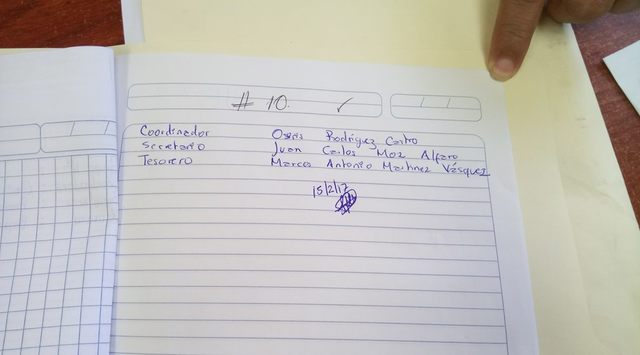 # 10. ✓
/ /
Coordinador Osiris Rodríguez Castro
Secretario Juan Carlos Moz Alfaro
Tesorero Marcos Antonio Martinez Vásquez
15/2/17